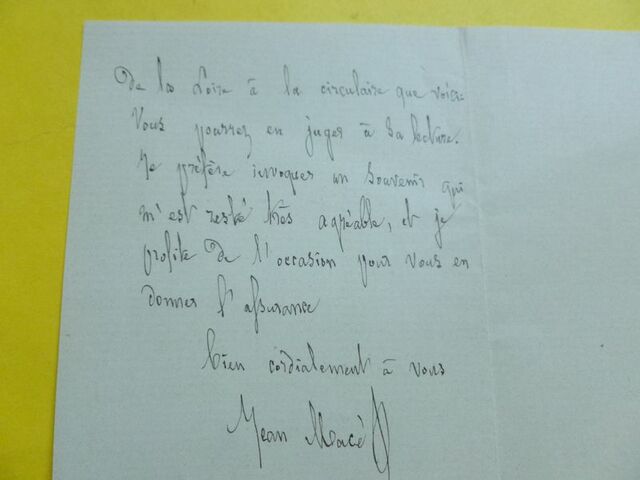 De la Loire à la circulaire que voici.
Vous pourrez en juger à sa lecture.
Je préfère invoquer un souvenir qui
m'est resté très agréable, et je
profite de l'occasion pour vous en
donner l'assurance
bien cordialement à vous
Jean Macé